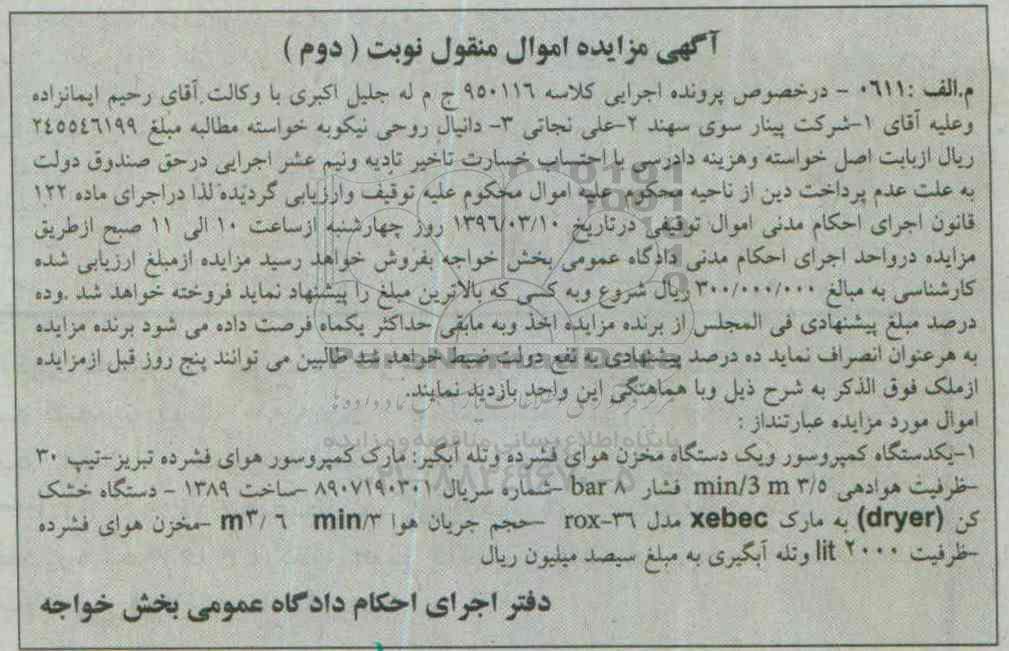 آگهی مزایده اموال منقول نوبت ( دوم )
م.الف :۰۶۱۱ - درخصوص پرونده اجرایی کلاسه ۹۵۰۱۱۶ ج م له جلیل اکبری با وکالت آقای رحیم ایمانزاده
وعلیه آقای ۱-شرکت پینار سوی سهند ۲-علی نجاتی ۳- دانیال روحی نیکوبه خواسته مطالبه مبلغ ۲۴۵۵۴۶۱۹۹
ریال ازبابت اصل خواسته وهزینه دادرسی با احتساب خسارت تاخیر تادیه ونیم عشر اجرایی درحق صندوق دولت
به علت عدم پرداخت دین از ناحیه محکوم علیه اموال محکوم علیه توقیف وارزیابی گردیده لذا دراجرای ماده ۱۲۲
قانون اجرای احکام مدنی اموال توقیفی درتاریخ ۱۳۹۶/۰۳/۱۰ روز چهارشنبه ازساعت ۱۰ الی ۱۱ صبح ازطریق
مزایده درواحد اجرای احکام مدنی دادگاه عمومی بخش خواجه بفروش خواهد رسید مزایده ازمبلغ ارزیابی شده
کارشناسی به مبالغ ۳۰۰/۰۰۰/۰۰۰ ریال شروع وبه کسی که بالاترین مبلغ را پیشنهاد نماید فروخته خواهد شد .وده
درصد مبلغ پیشنهادی فی المجلس از برنده مزایده اخذ وبه مابقی حداکثر یکماه فرصت داده می شود برنده مزایده
به هرعنوان انصراف نماید ده درصد پیشنهادی به نفع دولت ضبط خواهد شد طالبین می توانند پنج روز قبل ازمزایده
ازملک فوق الذکر به شرح ذیل وبا هماهنگی این واحد بازدید نمایند.
اموال مورد مزایده عبارتنداز :
۱-یکدستگاه کمپروسور ویک دستگاه مخزن هوای فشرده وتله آبگیر: مارک کمپروسور هوای فشرده تبریز-تیپ ۳۰
-ظرفیت هوادهی ۳/۵ min/3 m فشار ۸ bar -شماره سریال ۸۹۰۷۱۹۰۳۰۱ -ساخت ۱۳۸۹ - دستگاه خشک
کن (dryer) به مارک xebec مدل rox-۳۶ -حجم جریان هوا min/۳ m۳/ ۶ -مخزن هوای فشرده
-ظرفیت ۲۰۰۰ lit وتله آبگیری به مبلغ سیصد میلیون ریال
دفتر اجرای احکام دادگاه عمومی بخش خواجه
ParsNamadData
پایگاه اطلاع رسانی مناقصه و مزایده